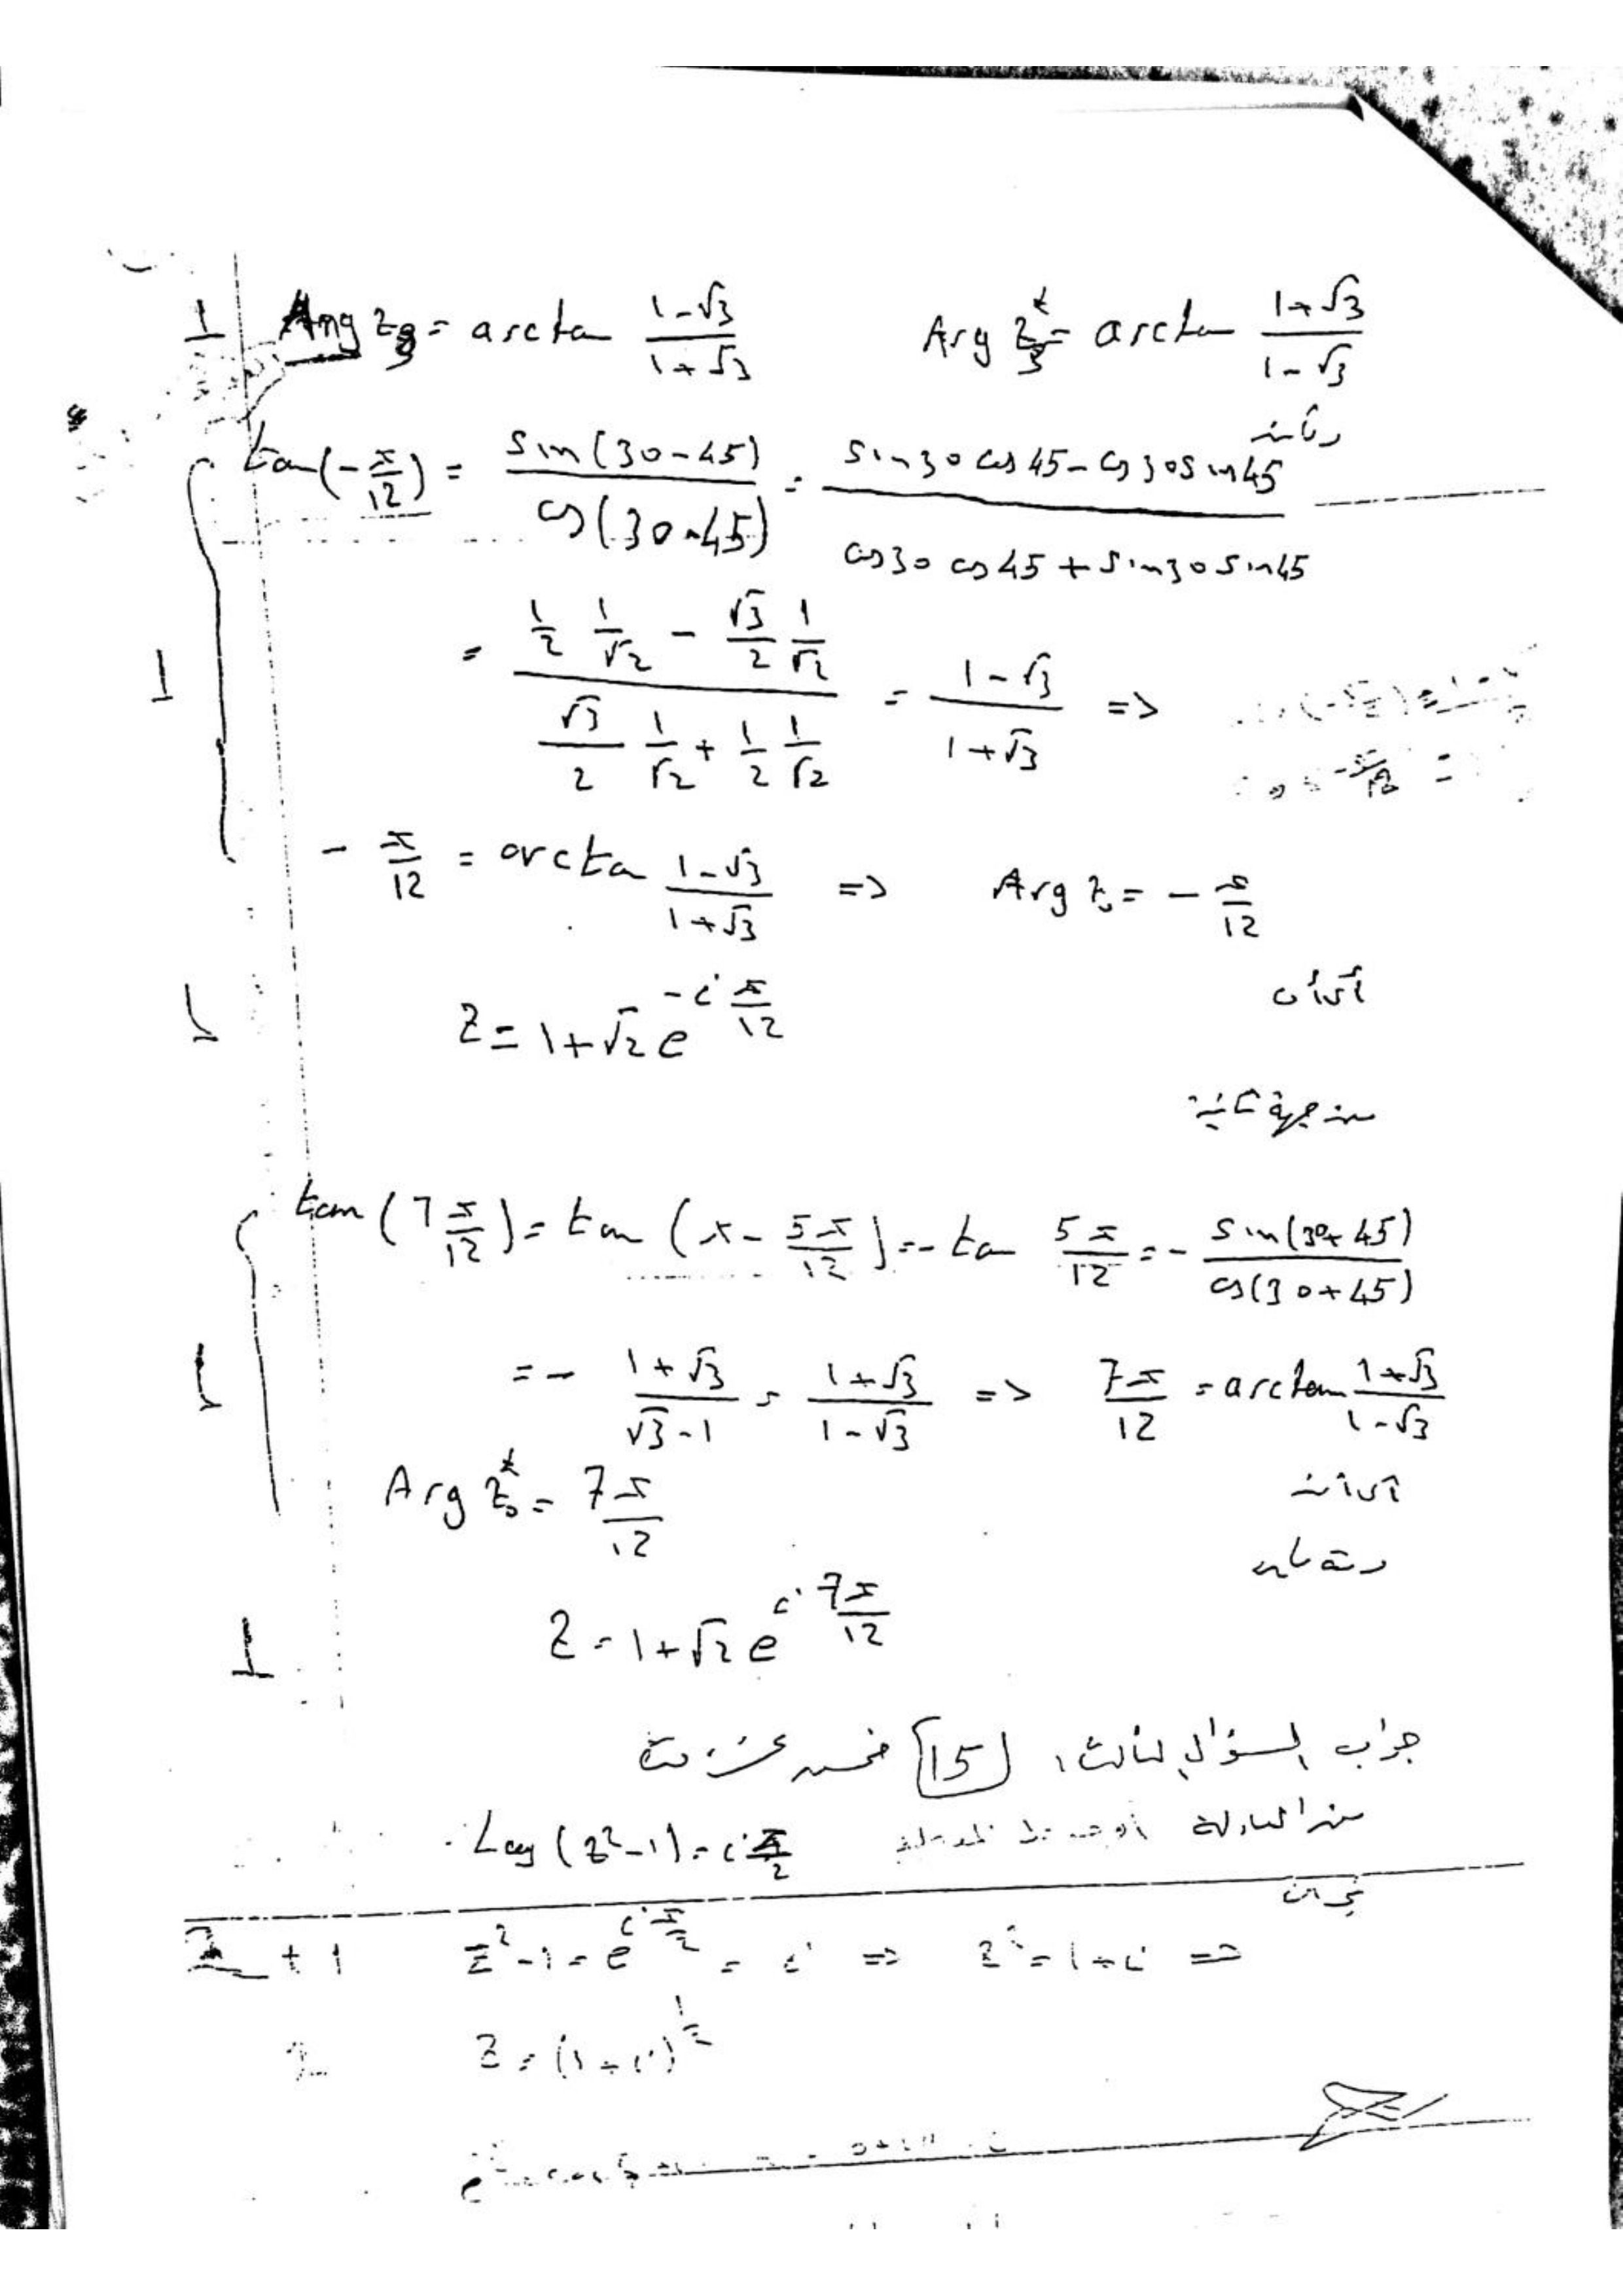 1 Arg z₀ = arctan (1-√3)/(1+√3) Arg z₀* = arctan (1+√3)/(1-√3)
tan(-π/12) = sin(30-45)/cos(30-45) = (sin30 cos45 - cos30 sin45)/(cos30 cos45 + sin30 sin45)
1 = (1/2 1/√2 - √3/2 1/√2)/(√3/2 1/√2 + 1/2 1/√2) = (1-√3)/(1+√3) =>
- π/12 = arctan (1-√3)/(1+√3) => Arg z₀ = - π/12
1 Z = 1+√2 e^(-i π/12)
من جهة ثانية
tan(7π/12) = tan(π - 5π/12) = - tan 5π/12 = - sin(30+45)/cos(30+45)
1 = - (1+√3)/(√3-1) = (1+√3)/(1-√3) => 7π/12 = arctan (1+√3)/(1-√3)
Arg z₀* = 7π/12
1 Z = 1+√2 e^(i 7π/12)
جواب السؤال الثالث: [15] خمس عشرة درجة
من المعادلة
Log(z²-1) = i π/2
نجد أن
2 + 1 z²-1 = e^(i π/2) = i => z² = 1+i =>
2 z = (1+i)^(1/2)